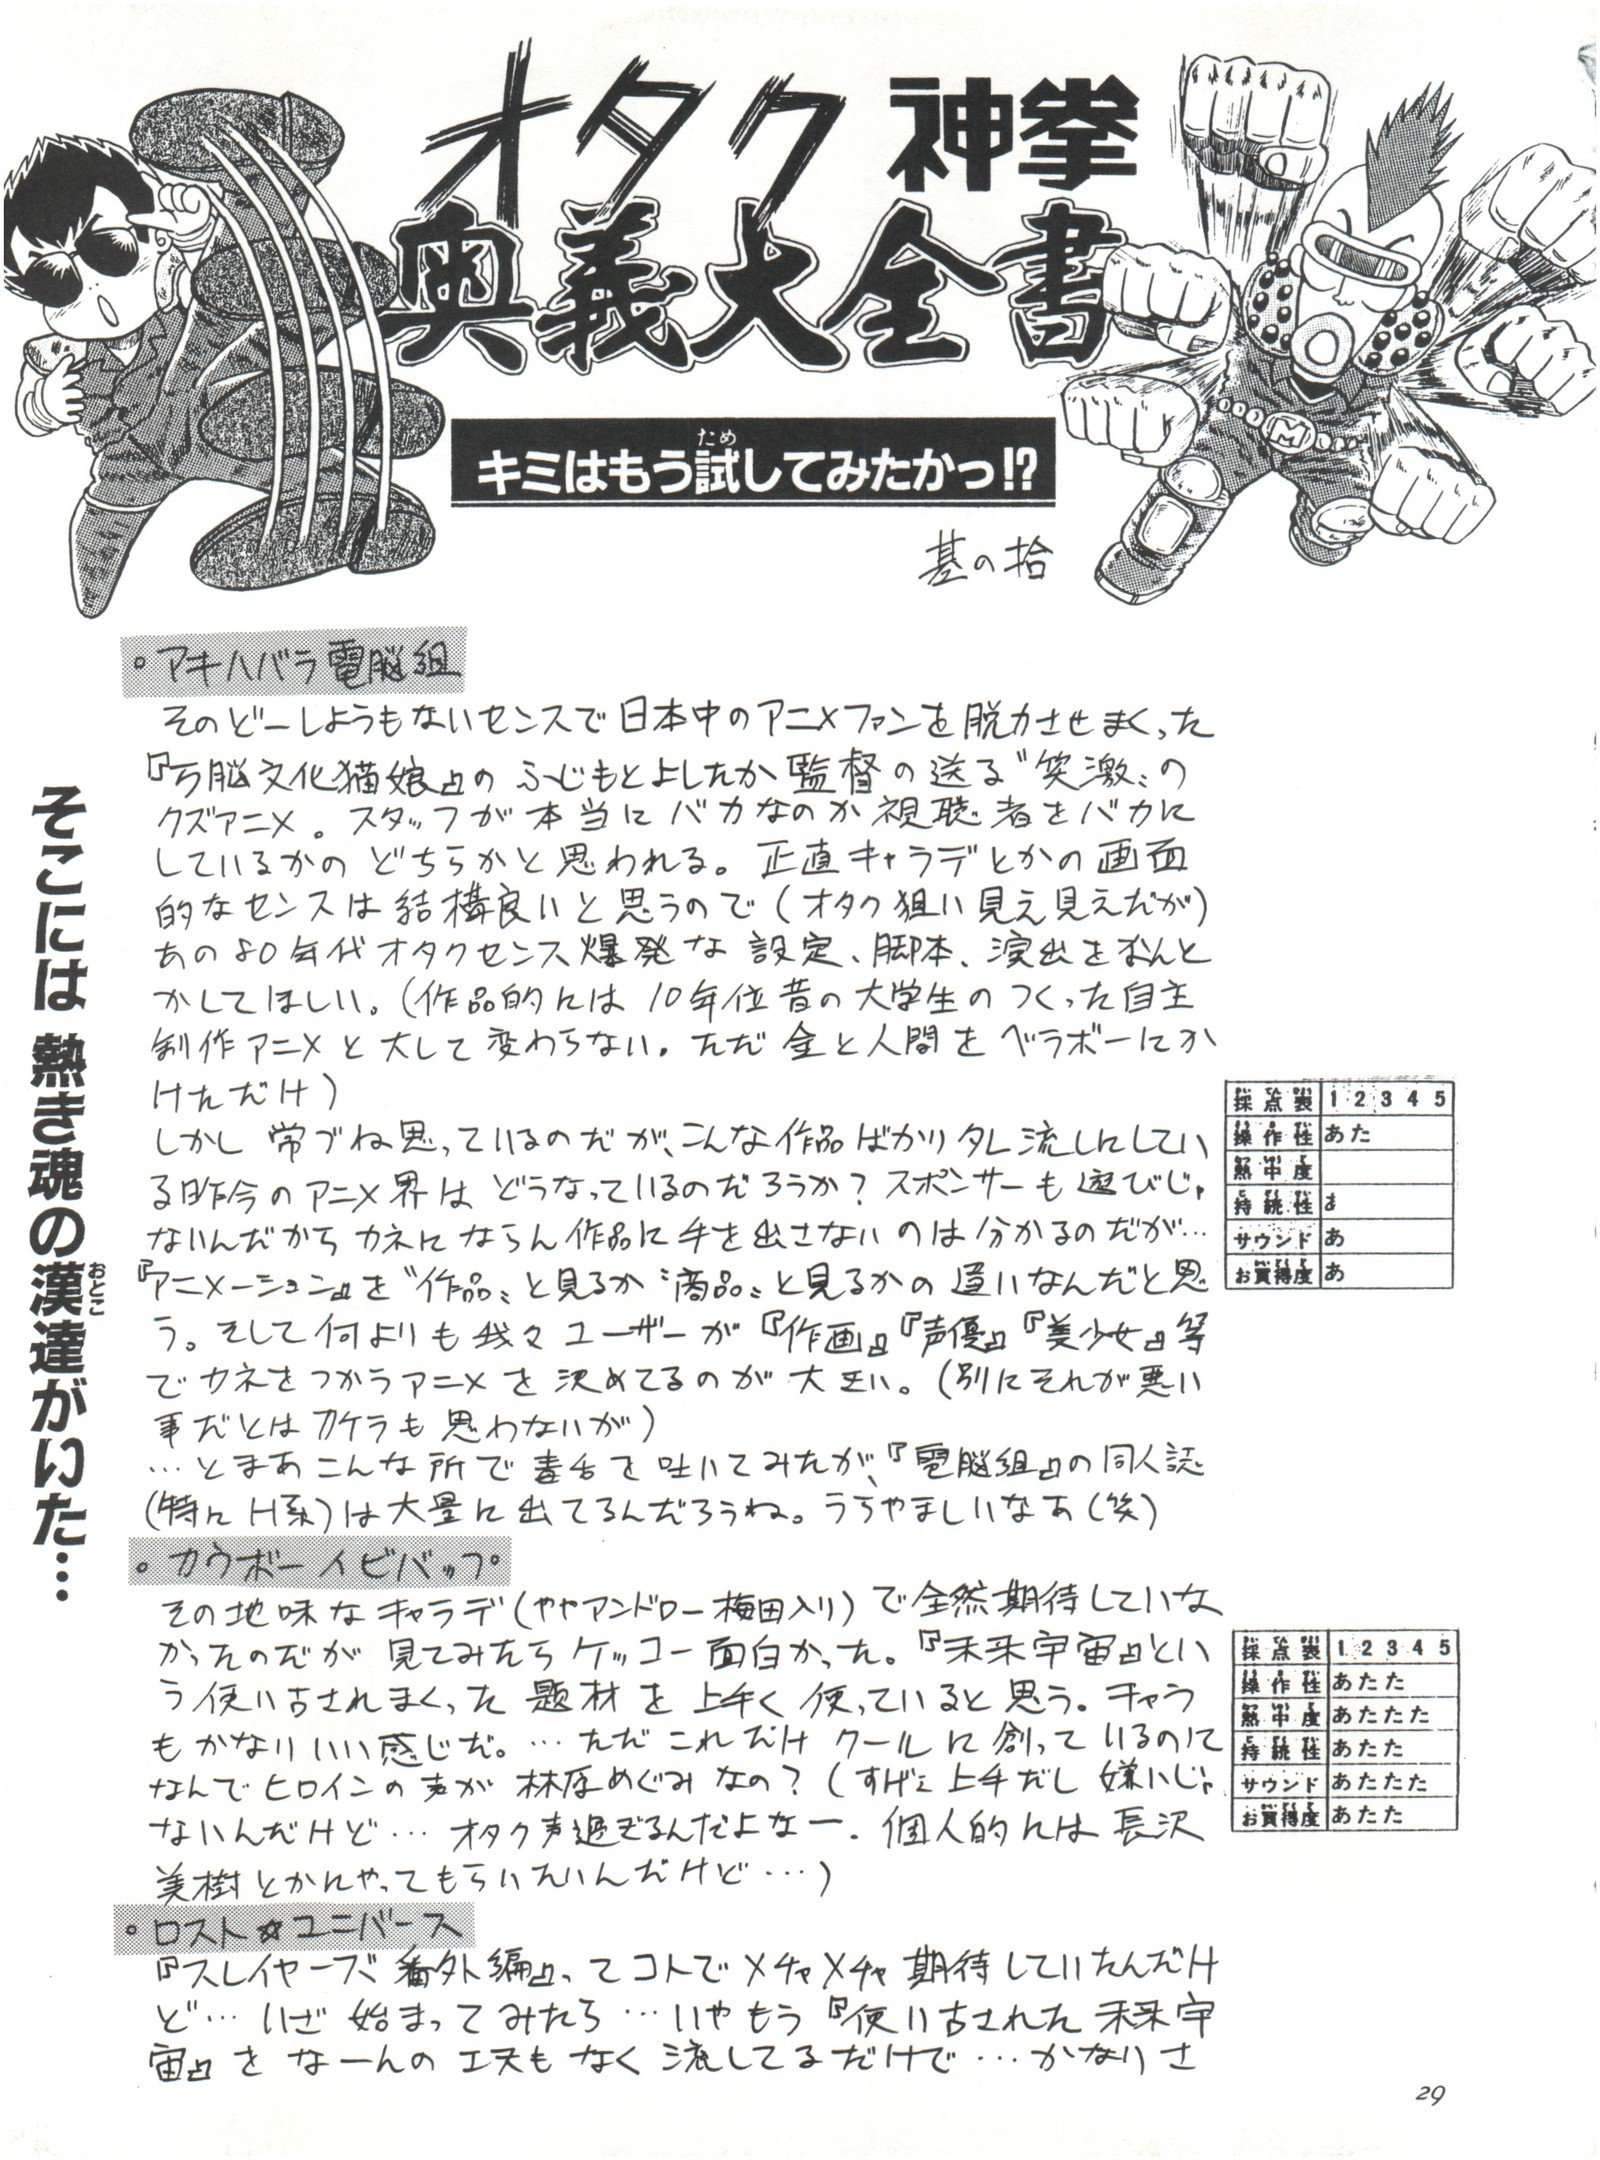 オタク神拳
奥義大全書
キミはもう試してみたかっ!?
ため
基の拾
そこには熱き魂の漢達がいた…
おとこ
。アキハバラ電脳組
そのどーしようもないセンスで日本中のアニメファンを脱力させまくった
『万脳文化猫娘』のふじもとよしたか監督の送る〝笑激〟の
クズアニメ。スタッフが本当にバカなのか視聴者をバカに
しているかのどちらかと思われる。正直キャラデとかの画面
的なセンスは結構良いと思うので(オタク狙い見え見えだが)
あの80年代オタクセンス爆発な設定、脚本、演出をなんと
かしてほしい。(作品的には10年位昔の大学生のつくった自主
制作アニメと大して変わらない。ただ金と人間をベラボーにか
けただけ)
しかし常づね思っているのだが、こんな作品ばかりタレ流しにしてい
る昨今のアニメ界はどうなっているのだろうか?スポンサーも遊びじゃ
ないんだからカネにならん作品に手を出さないのは分かるのだが…
『アニメーション』を〝作品〟と見るか〝商品〟と見るかの違いなんだと思
う。そして何よりも我々ユーザーが『作画』『声優』『美少女』等
でカネをつかうアニメを決めてるのが大きい。(別にそれが悪い
事だとはカケラも思わないが)
…とまあこんな所で毒舌を吐いてみたが、『電脳組』の同人誌
(特にH系)は大量に出てるんだろうね。うらやましいなあ(笑)
採点表 1 2 3 4 5
操作性 あた
熱中度
持続性 あ
サウンド あ
お買得度 あ
。カウボーイビバップ
その地味なキャラデ(ややアンドロー梅田入り)で全然期待していな
かったのだが見てみたらケッコー面白かった。『未来宇宙』とい
う使い古されまくった題材を上手く使っていると思う。キャラ
もかなりいい感じだ。…ただこれだけクールに創っているのに
なんでヒロインの声が林原めぐみなの?(すげー上手だし嫌いじゃ
ないんだけど…オタク声過ぎるんだよなー。個人的には長沢
美樹とかにやってもらいたいんだけど…)
採点表 1 2 3 4 5
操作性 あたた
熱中度 あたたた
持続性 あたた
サウンド あたたた
お買得度 あたた
。ロスト☆ユニバース
『スレイヤーズ番外編』ってコトでメチャメチャ期待していたんだけ
ど…いざ始まってみたら…いやもう『使い古された未来宇
宙』をなーんの工夫もなく流してるだけで…かなりさ
29